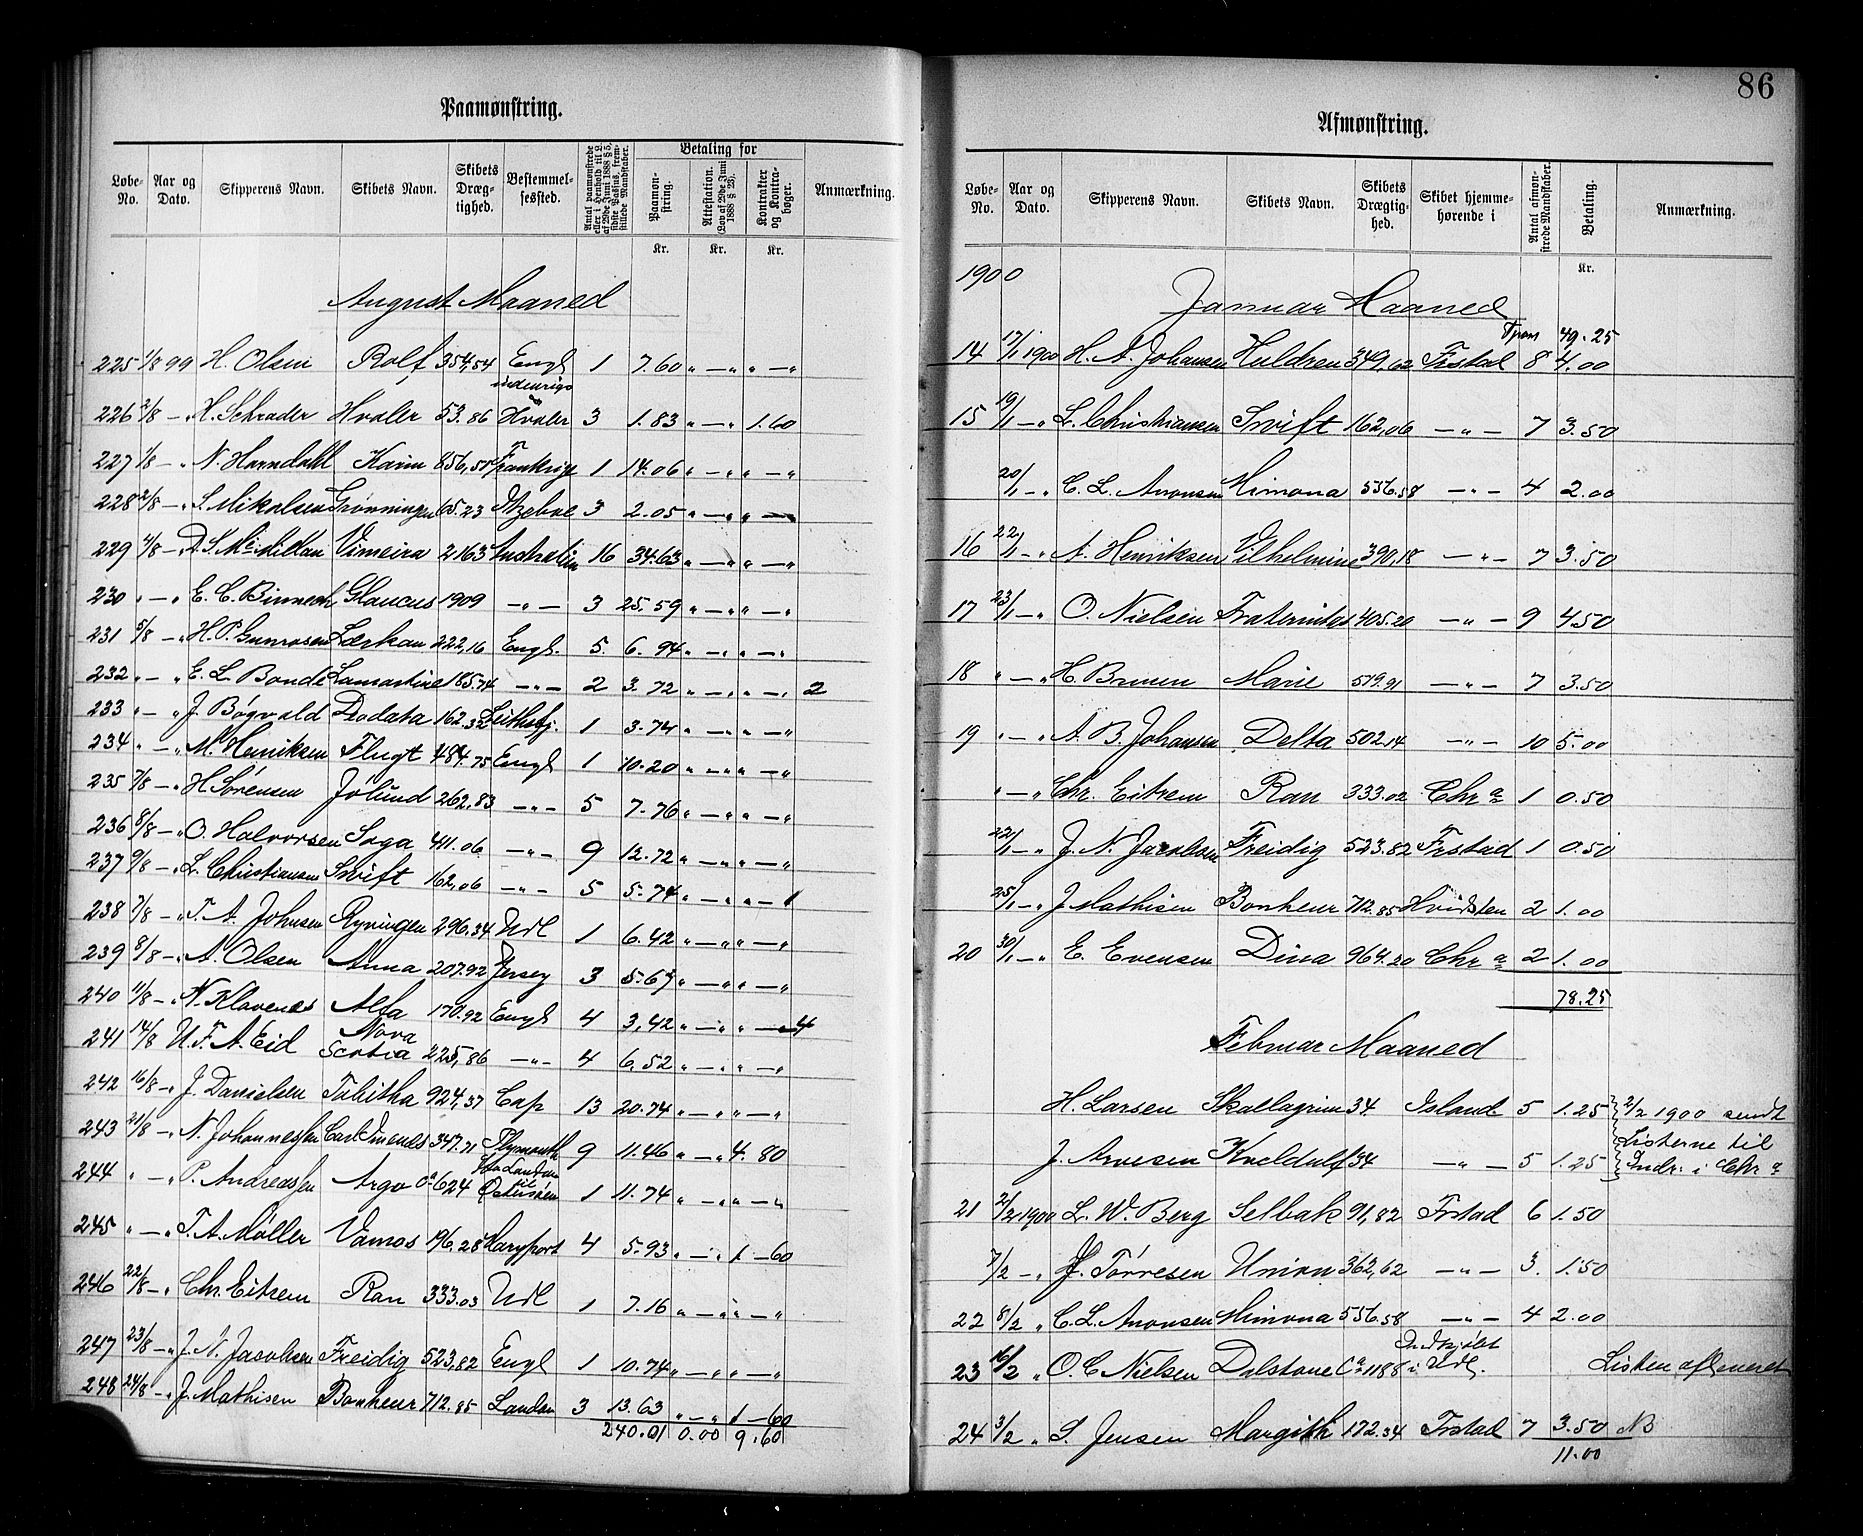 Paamønstring.
Løbe-No. Aar og Dato. Skipperens Navn. Skibets Navn. Skibets Dræg-tighed. Bestemmel-sessted. Antal paamønstrede eller i Henhold til L. af 29de Juni 1888 § 5, sidste Passus, frem-stillede Mandskaber. Betaling for Paamøn-string. Attestation. (Lov af 29de Juni 1888 § 23). Kontrakter og Kontra-bøger. Anmærkning.
Kr. Kr. Kr.
August Maaned
225 1/8 99 H. Olsen Rolf 354,54 Engl 1 7.60 " — " " — "
indenrigs
226 2/8 — " H. Schrader Hvaler 53.86 Hvaler 3 1.83 " — " 1.60
227 1/8 — " N. Harndahl Karin 856,50 Frankrige 1 14.06 " — " " — "
228 2/8 — " S. Mikalsen Grønningen 65.23 Itzehoe 3 2.05 " — " " —
229 4/8 — " D. S. McMillan Vimeira 2163 Australien 16 34.63 " — " " — "
230 " — " E. C. Binnech Glaucus 1909 — " — 3 25.59 " — " " — "
231 5/8 — " H. P. Gunvosen Lærkan 222,16 Engl. 5. 6.94 " — " " — "
232 " — " E. L. Bonde Lamartine 185.74 — " — 2 3.72 " — " " — " 2
233 " — " J. Bøgvald Deodata 162.32 Leithsfj. 1 3.74 " — " " — "
234 " — " M. Henriksen Flugt 484.75 Engl 1 10.20 " — " " — "
235 7/8 — " H Sørensen Jølund 262.83 — " — 5 7.76 " — " " — "
236 8/8 — " O. Halvorsen Saga 411.06 — " — 9 12.72 " — " " — "
237 9/8 — " L. Christiansen Swift 162,06 — " — 5 5.74 " — " " — 1
238 7/8 — " T. A. Johnsen Ryvingen 296.34 Udl 1 6.42 " — " " — "
239 8/8 — " A. Olsen Anna 207.92 Jersey 3 5.67 " — " " — "
240 11/8 — " N. Klavenes Alfa 170.92 Engl 4 3,42 " — " " — 4
241 14/8 U. F. A. Eid Nova Scotia 225,86 — " — 4 6,52 " — " " — "
242 16/8 — " J. Danielsen Tabitha 924,37 Cap 13 20.74 " — " " — "
243 21/8 — " N. Johannessen Carl Imenes 347.71 Plymouth 9 11.46 " — " 4.80
244 " — " P. Andreassen Argo 624 Østersøen 1 11.74 " — " " — "
245 " — " T. A. Møller Vamos 196.28 Maryport 4 5.93 " — " 1 — 60
246 22/8 — " Chr. Eitrem Ran 333.03 Udl 1 7.16 " — " " — "
247 23/8 — " J. N. Jacobsen Freidig 523,82 Engl 1 10.74 " — " " — "
248 24/8 — " J. Mathisen Bonheur 712.85 London 3 13.63 " — " 1 — 60
240.01 0.00 9.60
86
Afmønstring.
Løbe-No. Aar og Dato. Skipperens Navn. Skibets Navn. Skibets Drægtig-hed. Skibet hjemme-hørende i Antal afmøn-strede Mandskaber. Betaling. Anmærkning.
Kr.
1900
Januar Maaned
Tran 49.25
14 17/1 1900 H. A. Johansen Huldren 349,62 Frstad 8 4.00
15 19/1 — " L. Christiansen Swift 162,06 — " — 7 3.50
20/1 — " C. L. Aronsen Mimona 556.58 — " — 4 2.00
16 22/1 — " A. Henriksen Vilhelmine 390,18 — " — 7 3.50
17 23/1 — " O. Nielsen Fraternitas 405.20 — " — 9 4.50
18 " — " H. Bruun Marie 519.91 — " — 7 3.50
19 " — " A. B. Johansen Delta 502.14 — " — 10 5.00
" — " Chr. Eitrem Ran 333.02 Chr a 1 0.50
22/1 — " J. N. Jacobsen Freidig 523.82 Frstad 1 0.50
25/1 — " J Mathisen Bonheur 712.85 Hvidsten 2 1.00
20 30/1 — " E. Evensen Dina 964.20 Chr a 2 1.00
78.25
Februar Maaned
H. Larsen Skallagrim 34 Island 5 1.25 2/2 1900 sendt
Listerne til
J. Arvesen Kveldulf 34 — " — 5 1.25 Indr. i Chr a
21 2/2 1900 L. W. Berg Selbak 91,82 Frstad 6 1.50
7/2 — " H. Tørresen Union 362,62 — " — 3. 1.50
22 8/2 " C. L. Aronsen Mimona 556.58 — " — 4 2.00
23 16/2 " O. C. Nielsen Dalstone Ca 1188 i Udl. Listen afleveret
24 3/2 " S. Jensen Margith 172.34 Frstad 7 3.50 NB
11.00